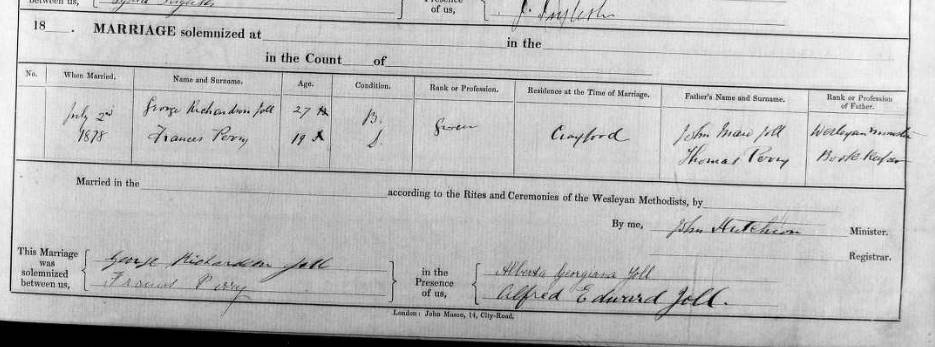 between us,
of us,
18 . MARRIAGE solemnized at in the
in the Count of
No. When Married. Name and Surname. Age. Condition. Rank or Profession. Residence at the Time of Marriage. Father's Name and Surname. Rank or Profession of Father.
July 2nd George Richardson Joll 27 B. Grocer Crayford John Maw Joll Wesleyan Minister
1878 Frances Perry 19 S. Thomas Perry Book Keeper
Married in the according to the Rites and Ceremonies of the Wesleyan Methodists, by
By me, John Hutchison Minister.
Registrar.
This Marriage was solemnized between us,
George Richardson Joll
Frances Perry
in the Presence of us,
Alberta Georgiana Joll
Alfred Edward Joll.
London: John Mason, 14, City-Road.